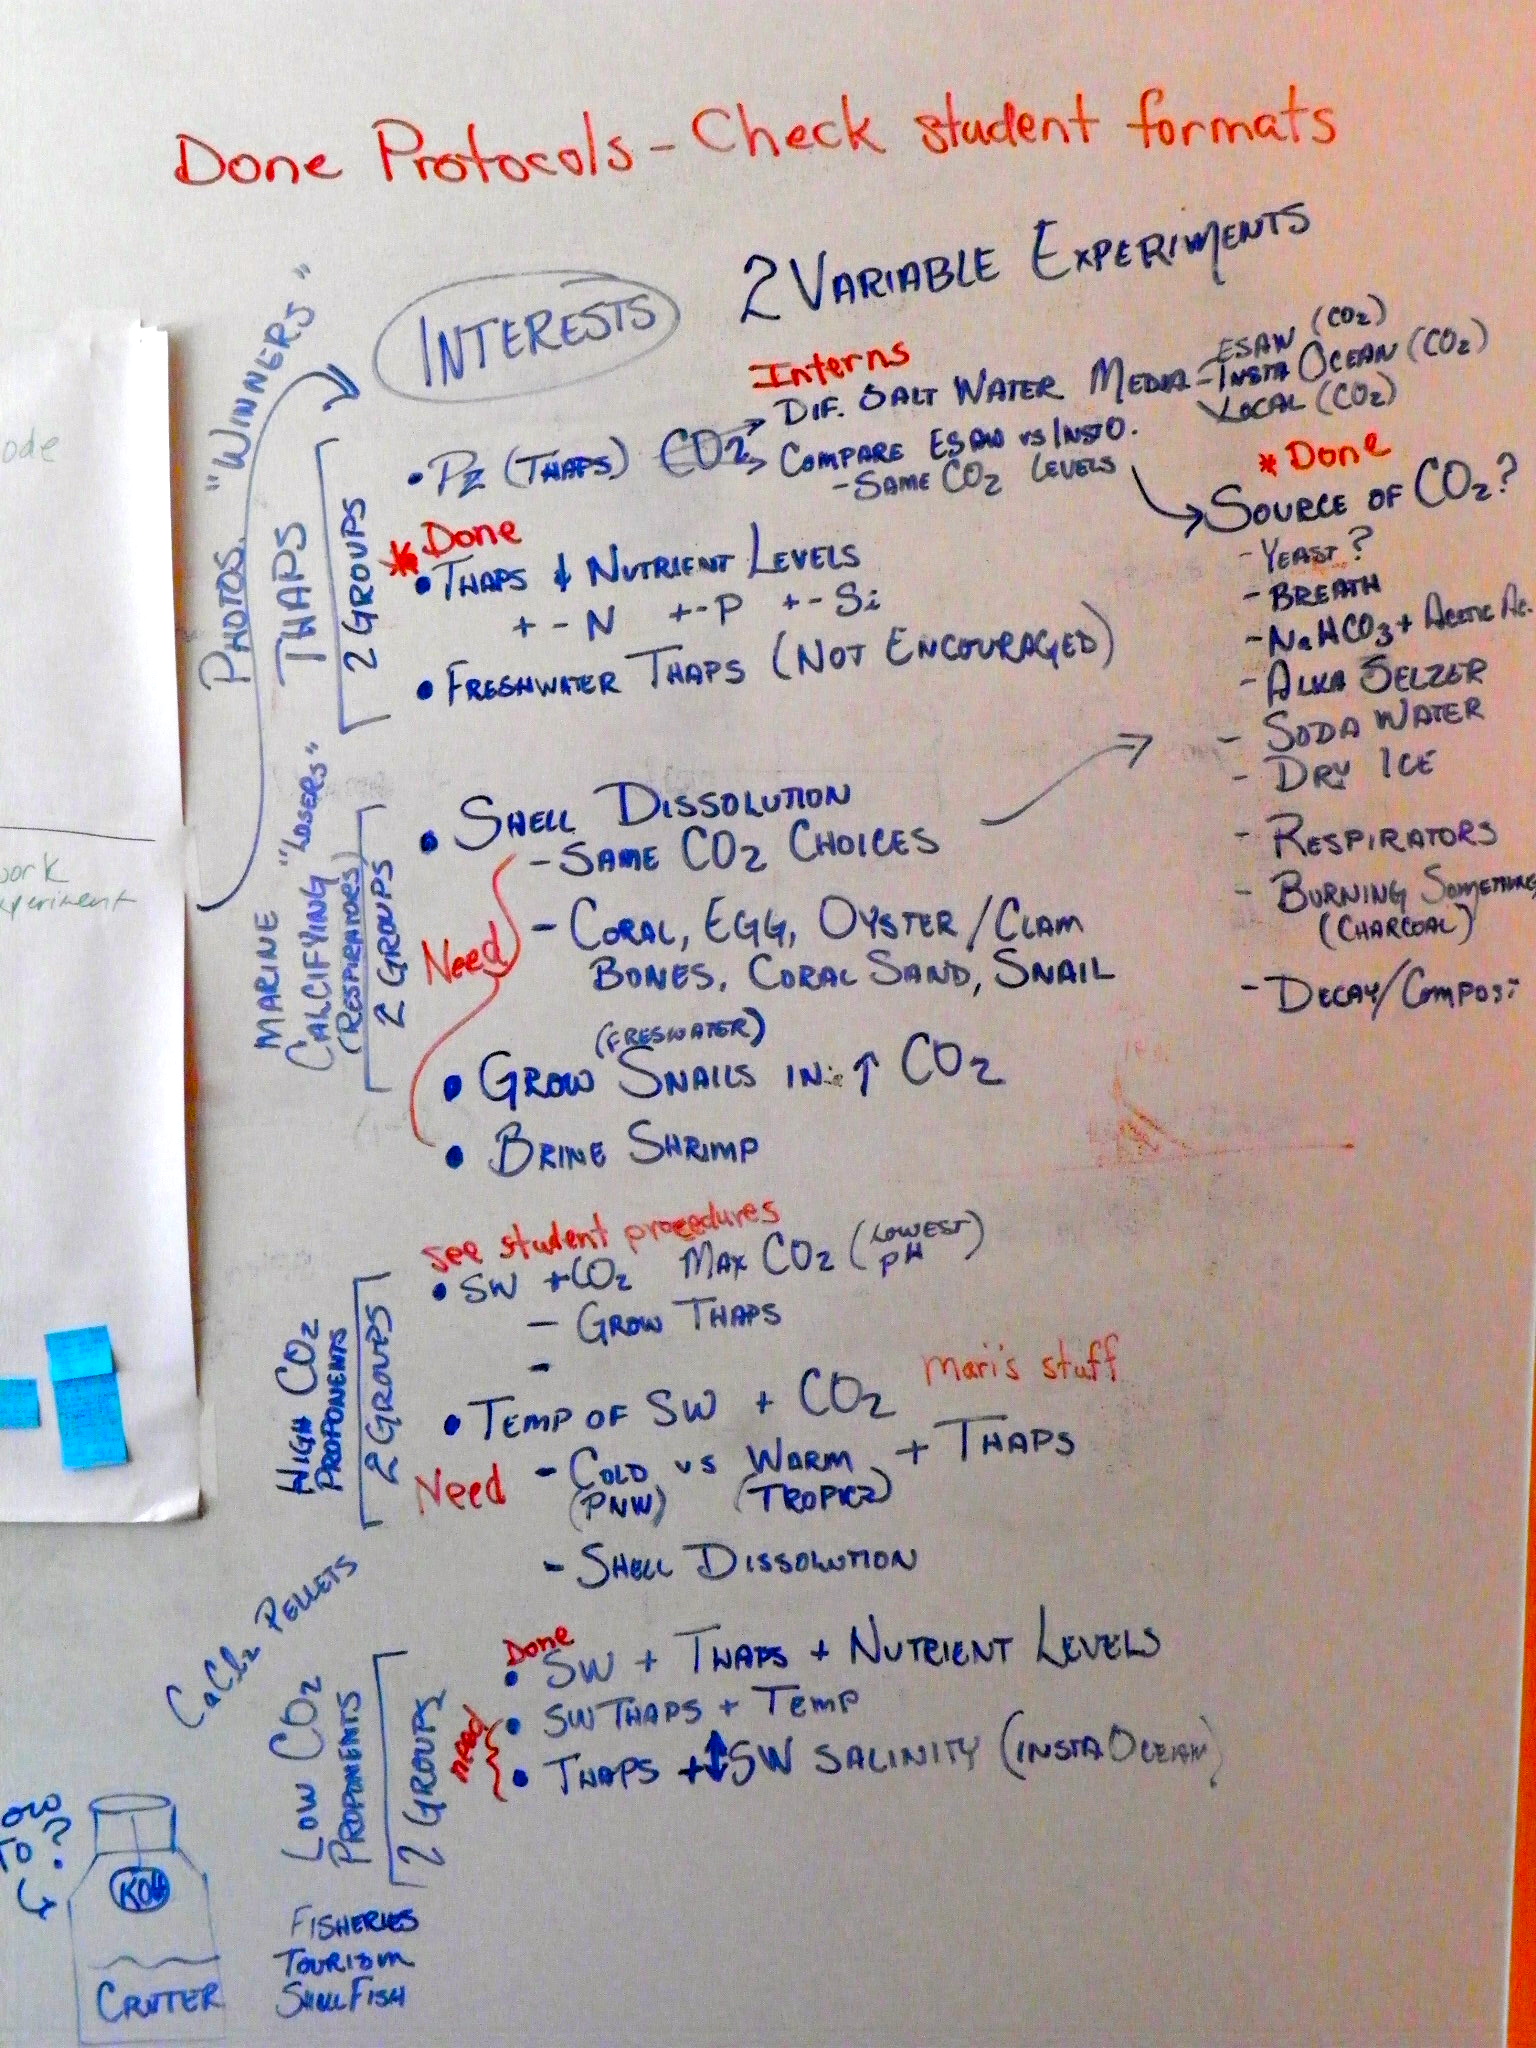 Done Protocols - Check student formats
2 VARIABLE EXPERIMENTS
INTERESTS
PHOTOS. "WINNERS"
THAPS
2 GROUPS
Interns
• PZ (THAPS) CO2
DIF. SALT WATER MEDIA
- ESAW (CO2)
- INSTA OCEAN (CO2)
LOCAL (CO2)
COMPARE ESAW VS INSTO.
- SAME CO2 LEVELS
* Done
• THAPS & NUTRIENT LEVELS
+ - N +- P +- Si
• FRESHWATER THAPS (NOT ENCOURAGED)
* Done
SOURCE OF CO2?
- YEAST?
- BREATH
- NaHCO3 + ACETIC AC.
- ALKA SELZER
- SODA WATER
- DRY ICE
- RESPIRATORS
- BURNING SOMETHING
(CHARCOAL)
- DECAY/COMPOST
MARINE "LOSERS"
CALCIFYING
(RESPIRATORS)
2 GROUPS
• SHELL DISSOLUTION
- SAME CO2 CHOICES
Need
- CORAL, EGG, OYSTER/CLAM
BONES, CORAL SAND, SNAIL
(FRESWATER)
• GROW SNAILS IN ↑ CO2
• BRINE SHRIMP
HIGH CO2
PROPONENTS
2 GROUPS
see student procedures
• SW +CO2 MAX CO2 (LOWEST
pH)
- GROW THAPS
-
Mari's stuff
• TEMP OF SW + CO2
Need
- COLD VS WARM + THAPS
(PNW) (TROPICS)
- SHELL DISSOLUTION
CaCl2 PELLETS
LOW CO2
PROPONENTS
2 GROUPS
Done
• SW + THAPS + NUTRIENT LEVELS
need
• SW THAPS + TEMP
• THAPS +↕SW SALINITY (INSTA OCEAN)
TO?
KOH
CRITTER
FISHERIES
TOURISM
SHELLFISH
ode
work
experiment